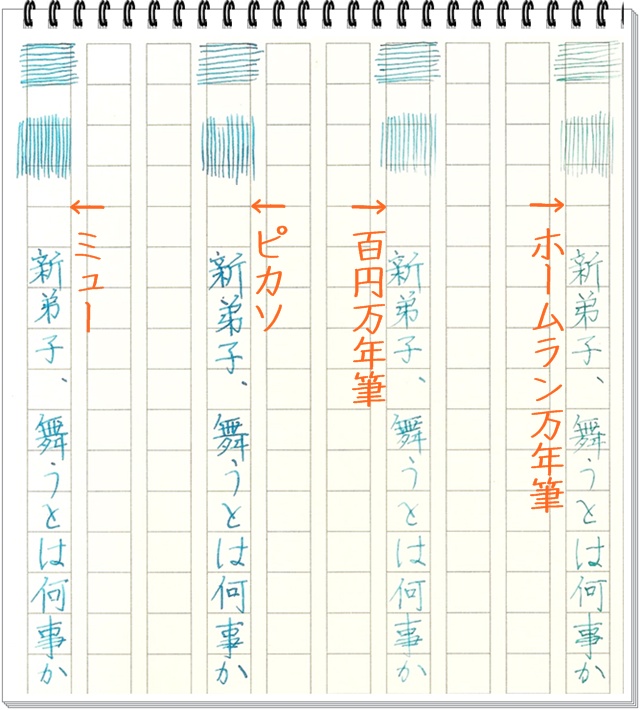 新弟子、舞うとは何事か
ホームラン万年筆
新弟子、舞うとは何事か
百円万年筆
ピカソ
新弟子、舞うとは何事か
ミュー
新弟子、舞うとは何事か